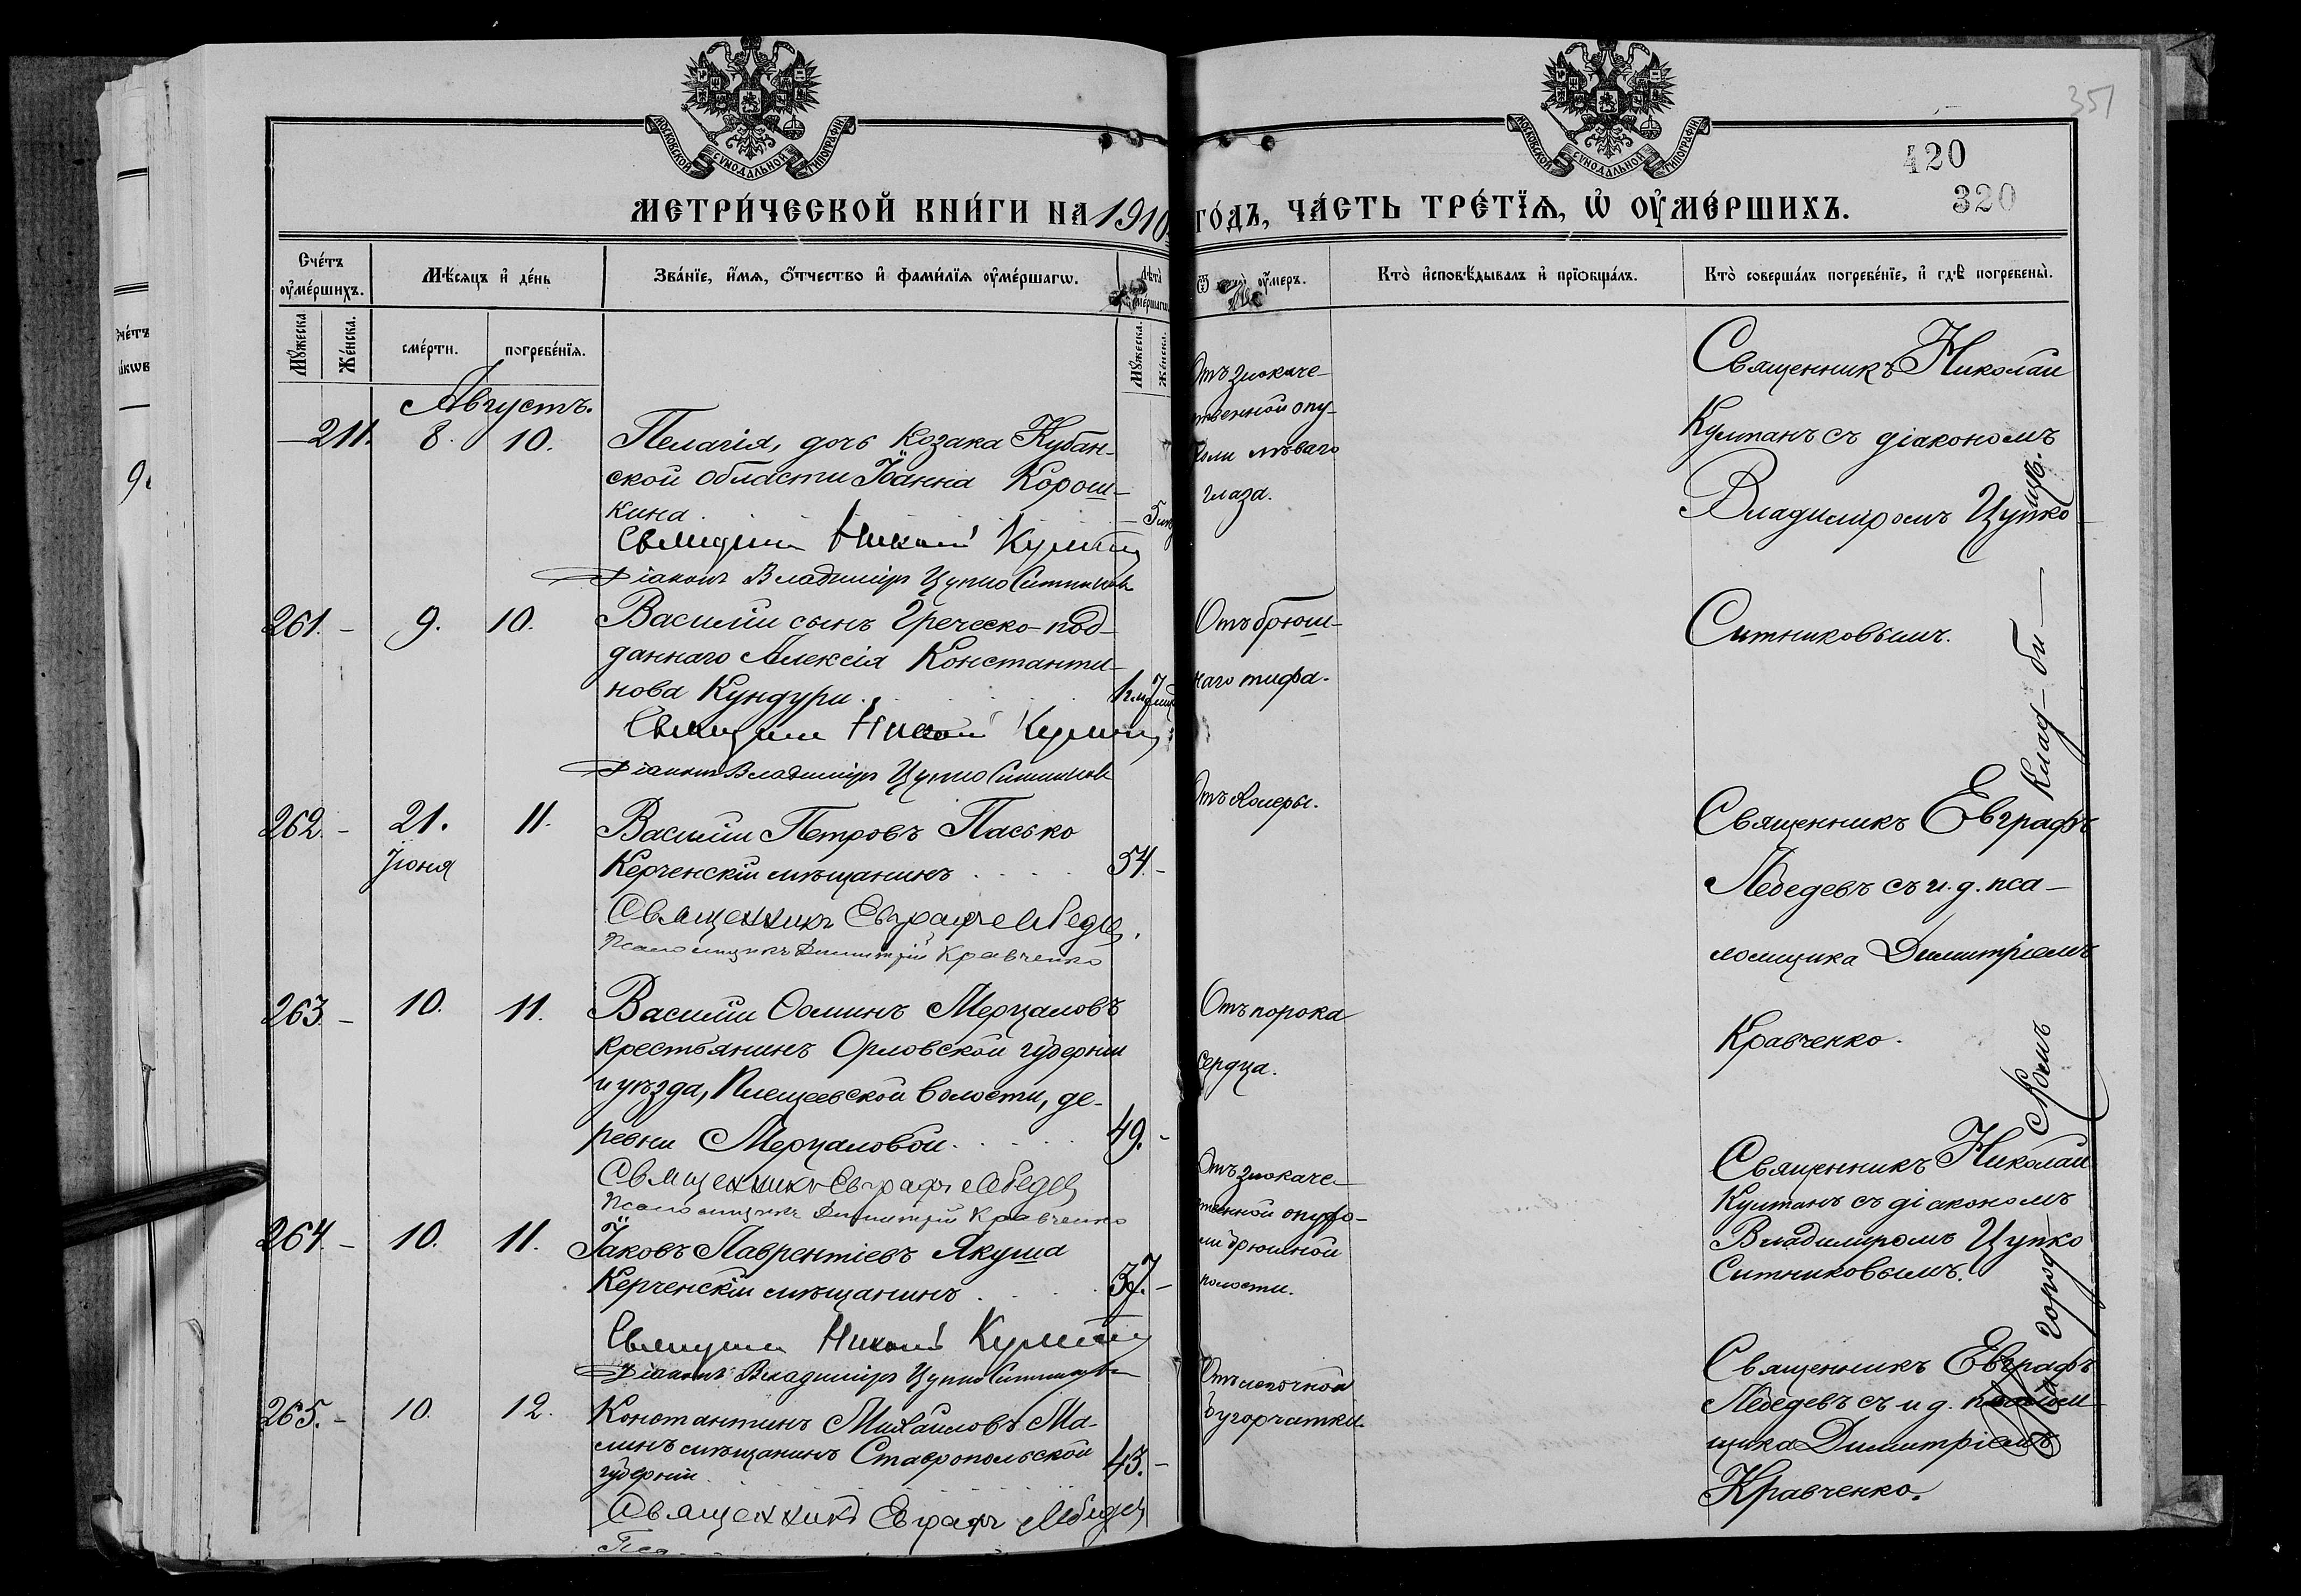 351
420
320
МОСКОВСКОЙ СѴНОДАЛЬНОЙ ТИПОГРАФІИ
МОСКОВСКОЙ СѴНОДАЛЬНОЙ ТИПОГРАФІИ
МЕТРИ́ЧЕСКОЙ КНИ́ГИ НА 1910 ГО́ДЪ, ЧА́СТЬ ТРЕ́ТЇѦ, Ѡ҆ ОУ҆МЕ́РШИХЪ.
Сче́тъ оу҆ме́ршихъ.
Мѣ́сѧцъ и҆ де́нь
Зва́нїе, и҆́мѧ, ѻ҆́тчество и҆ фами́лїѧ оу҆ме́ршагѡ.
Лѣ́та
оу҆́меръ.
Кто̀ и҆сповѣ́дывалъ и҆ прїѡбща́лъ.
Кто̀ соверша́лъ погребе́нїе, и҆ гдѣ̀ погребены̀.
Мꙋ́жеска.
Же́нска.
сме́рти.
погребе́нїѧ.
Мꙋ́жеска.
Же́нска.
Августъ.
211. 8. 10.
Пелагія, дочь Козака Кубан-
ской области Іоанна Корош-
кина
Священникъ Николай Култанъ
Діаконъ Владиміръ Цупко Ситниковъ
Отъ злокаче-
ственной опу-
холи лѣваго
глаза.
Священникъ Николай
Култанъ съ діакономъ
Владиміромъ Цупко
Ситниковымъ.
261. - 9. 10.
Василій сынъ Греческо-под-
даннаго Алексія Константи-
нова Кундури
Священникъ Николай Култанъ
Діаконъ Владиміръ Цупко Ситниковъ
Отъ брюш-
наго тифа.
262. - 21. 11.
Іюня
Василій Петровъ Пасько
Керченскій мѣщанинъ 54. -
Священникъ Евграфъ Лебедевъ.
Псаломщикъ Димитрій Кравченко
Отъ холеры.
Священникъ Евграфъ
Лебедевъ съ и. д. пса-
ломщика Димитріемъ
Кравченко.
263 - 10. 11.
Василій Ѳоминъ Мерцаловъ
крестьянинъ Орловской губерніи
и уѣзда, Плещеевской волости, де-
ревни Мерцаловой. 49. -
Священникъ Евграфъ Лебедевъ
Псаломщикъ Димитрій Кравченко
Отъ порока
сердца.
264. - 10. 11.
Іаковъ Лаврентіевъ Якуша
Керченскій мѣщанинъ 37. -
Священникъ Николай Култанъ
Діаконъ Владиміръ Цупко Ситниковъ
Отъ злокаче-
ственной опухо-
ли брюшной
полости.
Священникъ Николай
Култанъ съ діакономъ
Владиміромъ Цупко
Ситниковымъ.
265. - 10. 12.
Константинъ Михайловъ Ма-
линъ мѣщанинъ Ставропольской
губерніи 43. -
Священникъ Евграфъ Лебедевъ
Отъ легочной
бугорчатки.
Священникъ Евграфъ
Лебедевъ съ и д. псалом-
щика Димитріемъ
Кравченко.
На город-
скомъ
клад-би-
щѣ.